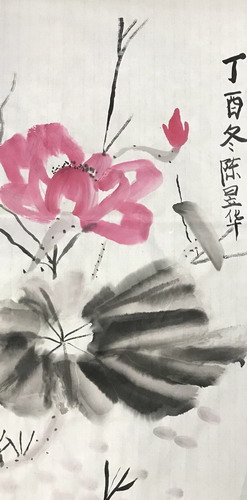 丁酉冬陈昱华